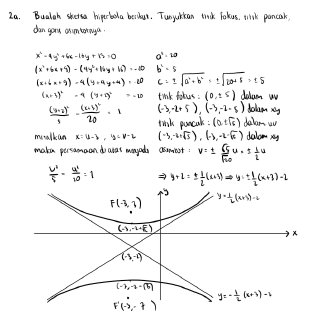 2a. Buatlah sketsa hiperbola berikut. Tunjukkan titik fokus, titik puncak,
dan garis asimtotnya.
x² - 4y² + 6x - 16y + 13 = 0
(x² + 6x + 9) - (4y² + 16y + 16) = -20
(x + 3)² - 4 (y + 2)² = -20
(y+2)²/5 - (x+3)²/20 = 1
misalkan x = u-3, y = v-2
maka persamaan di atas menjadi
v²/5 - u²/20 = 1
a² = 20
b² = 5
c = ± √(a² + b²) = ± √(20+5) = ± 5
titik fokus : (0, ± 5) dalam uv
(-3, -2+5), (-3, -2-5) dalam xy
titik puncak : (0, ±√5) dalam uv
(-3, -2+√5), (-3, -2-√5) dalam xy
asimtot : v = ± √5/√20 u = ± 1/2 u
⇒ y+2 = ± 1/2 (x+3) ⇒ y = ± 1/2 (x+3) - 2
y
F(-3, 3)
y = 1/2 (x+3) - 2
(-3, -2+√5)
x
(-3, -2)
(-3, -2-√5)
F'(-3, -7)
y = -1/2 (x+3) - 2